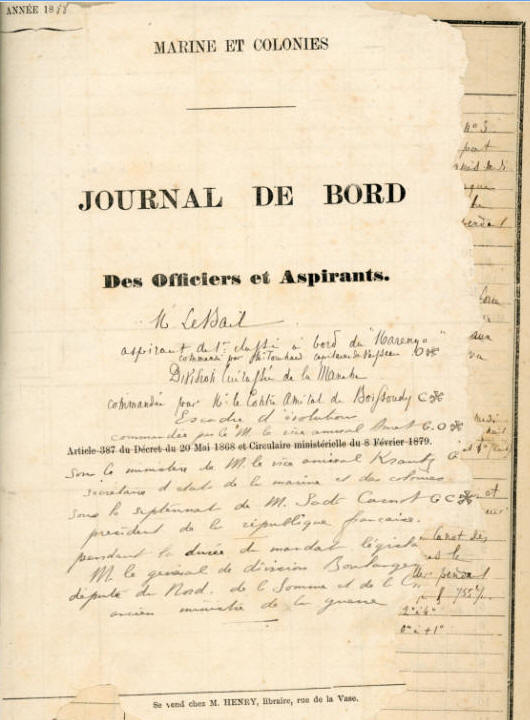 ANNÉE 1888
MARINE ET COLONIES
JOURNAL DE BORD
Des Officiers et Aspirants.
M Le Bail
aspirant de 1re classe à bord du "Marengo"
commandé par capitaine de vaisseau O
Division cuirassée de la Manche
commandée par M. le Contre Amiral de Boissoudy C
Escadre d'évolution
commandée par le M. le vice amiral Amet G.O
Article 387 du Décret du 20 Mai 1868 et Circulaire ministérielle du 8 Février 1879.
Sous le ministère de M. le vice amiral Krantz G
secrétaire d'état de la marine et des colonies
Sous le septennat de M. Sadi Carnot G C
président de la république française.
pendant la durée du mandat législa
M. le général de division Boulanger
député du Nord, de la Somme et de la C
ancien ministre de la guerre
Se vend chez M. HENRY, libraire, rue de la Vase.
n° 3
port
Canot des
le
pendant
755
2° à 4°
0° à +1°